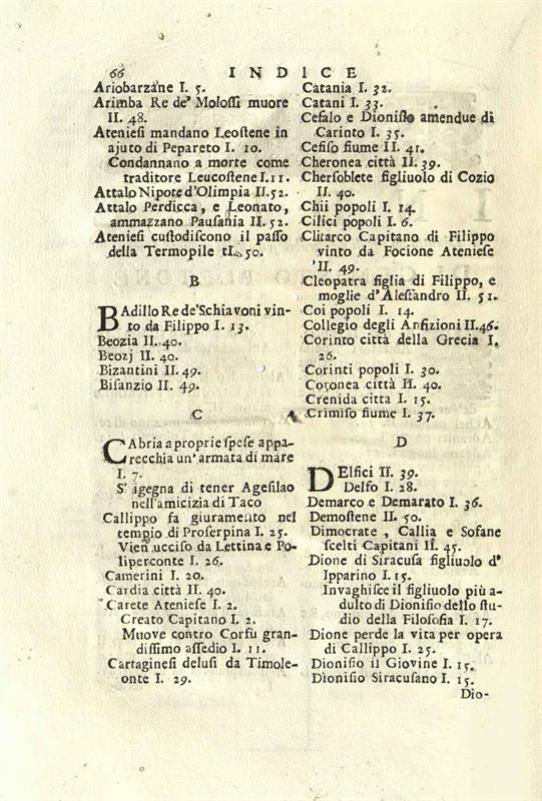 66 INDICE
Ariobarzane I. 5.
Arimba Re de' Molossi muore
II. 48.
Ateniesi mandano Leostene in
ajuto di Pepareto I. 10.
Condannano a morte come
traditore Leucostene I. 11.
Attalo Nipote d'Olimpia II. 52.
Attalo Perdicca, e Leonato,
ammazzano Pausania II. 52.
Ateniesi custodiscono il passo
della Termopile II. 50.
B
BAdillo Re de' Schiavoni vin-
to da Filippo I. 13.
Beozia II. 40.
Beozj II. 40.
Bizantini II. 49.
Bisanzio II. 49.
C
CAbria a proprie spese appa-
recchia un' armata di mare
I. 7.
S' igegna di tener Agesilao
nell'amicizia di Taco
Callippo fa giuramento nel
tempio di Proserpina I. 25.
Vien ucciso da Lettina e Po-
liperconte I. 26.
Camerini I. 20.
Cardia città II. 40.
Carete Ateniese I. 2.
Creato Capitano I. 2.
Muove contro Corfù gran-
dissimo assedio I. 11.
Cartaginesi delusi da Timole-
onte I. 29.
Catania I. 32.
Catani I. 33.
Cefalo e Dionisio amendue di
Carinto I. 35.
Cefiso fiume II. 41.
Cheronea città II. 39.
Chersoblete figliuolo di Cozio
II. 40.
Chii popoli I. 14.
Cilici popoli I. 6.
Clitarco Capitano di Filippo
vinto da Focione Ateniese
II. 49.
Cleopatra figlia di Filippo, e
moglie d'Alessandro II. 51.
Coi popoli I. 14.
Collegio degli Anfizioni II. 46.
Corinto città della Grecia I.
26.
Corinti popoli I. 30.
Coronea città II. 40.
Crenida citta I. 15.
Crimiso fiume I. 37.
D
DElfici II. 39.
Delfo I. 28.
Demarco e Demarato I. 36.
Demostene II. 50.
Dimocrate, Callia e Sofane
scelti Capitani II. 45.
Dione di Siracusa figliuolo d'
Ipparino I. 15.
Invaghisce il figliuolo più a-
dulto di Dionisio dello stu-
dio della Filosofia I. 17.
Dione perde la vita per opera
di Callippo I. 25.
Dionisio il Giovine I. 15.
Dionisio Siracusano I. 15.
Dio-